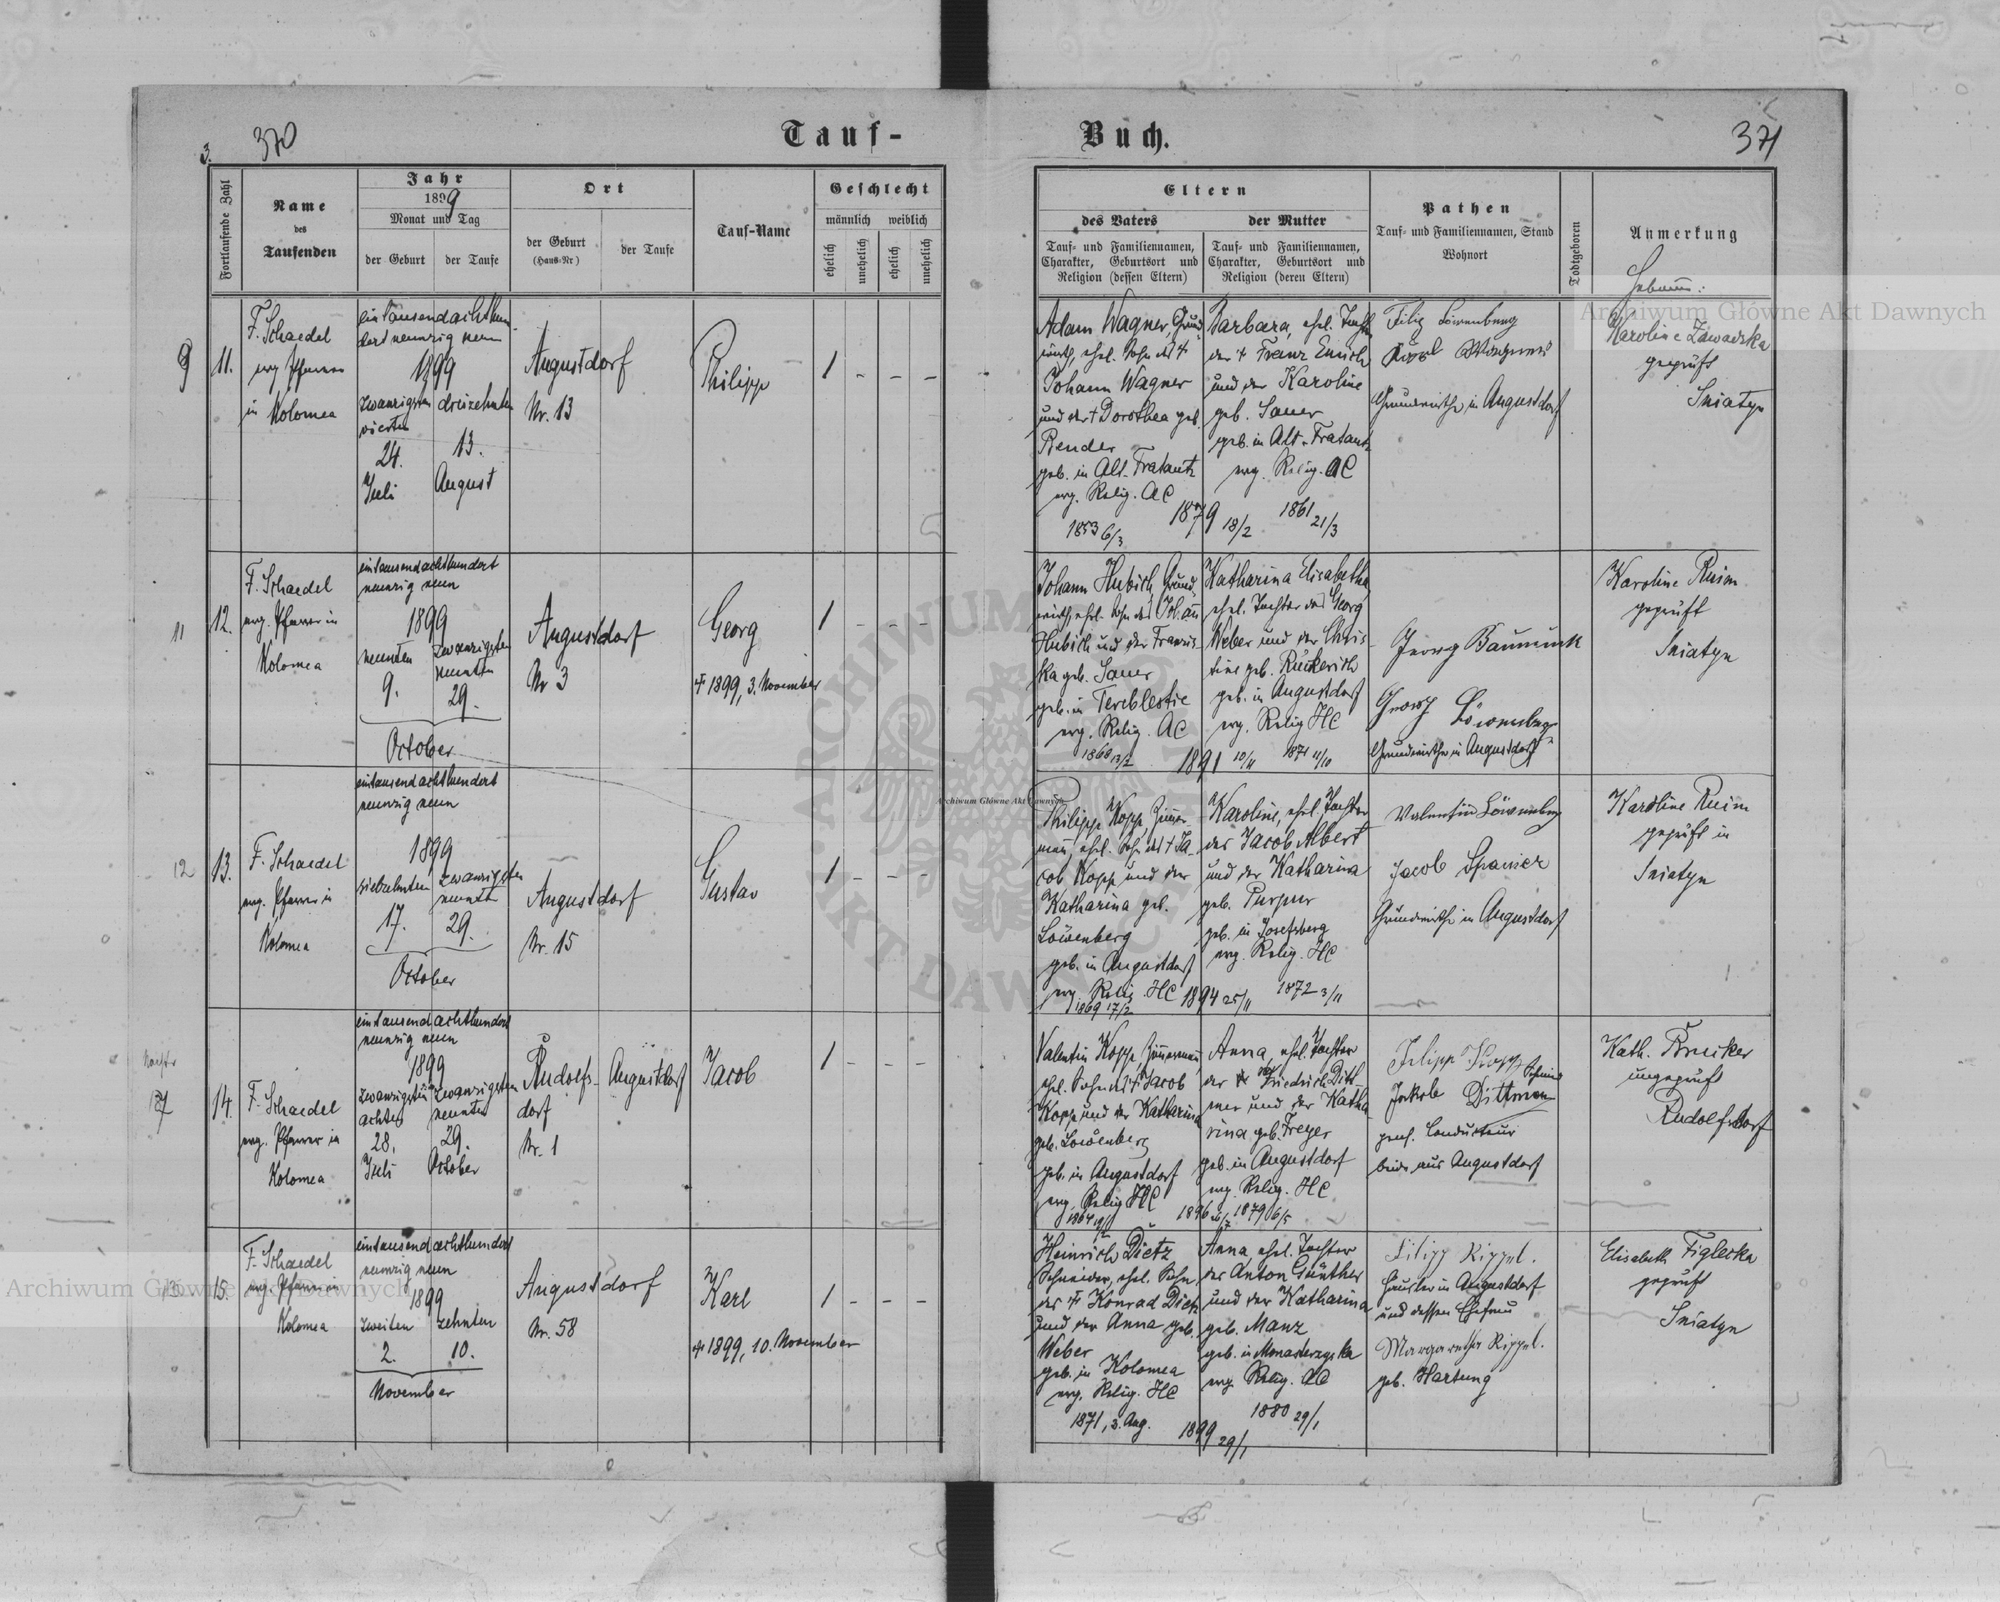 Tauf-
Buch.
3.
370
371
Fortlaufende Zahl
Name
des
Taufenden
Jahr
1899
Monat und Tag
der Geburt
der Taufe
Ort
der Geburt
(Haus-Nr)
der Taufe
Tauf-Name
Geschlecht
männlich
weiblich
ehelich
unehelich
ehelich
unehelich
Eltern
des Vaters
Tauf- und Familiennamen,
Charakter, Geburtsort und
Religion (dessen Eltern)
der Mutter
Tauf- und Familiennamen,
Charakter, Geburtsort und
Religion (deren Eltern)
Pathen
Tauf- und Familiennamen, Stand
Wohnort
Todtgeboren
Anmerkung
9
11.
F. Schaedel
evg. Pfarrer
in Kolomea
eintausendachthun-
dert neunzig neun
1899
zwanzigsten
vierten
24.
Juli
dreizehnten
13.
August
Augustdorf
Nr. 13
Philipp
1 - - -
Adam Wagner, Grund-
wirth, ehel. Sohn des †
Johann Wagner
und der † Dorothea geb.
Bender
geb. in Alt-Fratautz
evg. Relig. AC
1853 6/3
1879 18/2
Barbara, ehel. Tochter
der † Franz Emich
und der Karoline
geb. Sauer
geb. in Alt-Fratautz
evg. Relig. AC
1861 21/3
Filip Löwenberg
Karl Wagner
Grundwirthe in Augustdorf
Karoline Zawadzka
geprüft
Sniatyn
11
12.
F. Schaedel
evg. Pfarrer in
Kolomea
eintausendachthundert
neunzig neun
1899
neunten
9.
zwanzigsten
neunten
29.
October
Augustdorf
Nr 3
Georg
† 1899, 3. November
1 - - -
Johann Hubich, Grund-
wirth, ehel. Sohn des Johann
Hubich und der Franzis-
ka geb. Sauer
geb. in Tereblestie
evg. Relig. AC
1868 13/2
1891 10/11
Katharina Elisabetha
ehel. Tochter des Georg
Weber und der Chris-
tine geb. Rückerich
geb. in Augustdorf
evg. Relig HC
1871 11/10
Georg Baumunk
Georg Löwenberg
Grundwirthe in Augustdorf
Karoline Ruim
geprüft
Sniatyn
12
13.
F. Schaedel
evg. Pfarrer in
Kolomea
eintausendachthundert
neunzig neun
1899
siebzehnten
17.
zwanzigsten
neunten
29.
October
Augustdorf
Nr. 15
Gustav
1 - - -
Philipp Kopp, Zimmer-
mann, ehel. Sohn des † Ja-
cob Kopp und der
Katharina geb.
Löwenberg
geb. in Augustdorf
evg. Relig. HC
1869 17/2
1894 25/11
Karoline, ehel. Tochter
des Jacob Albert
und der Katharina
geb. Purpur
geb. in Josefsberg
evg. Relig. HC
1872 3/11
Valentin Löwenberg
Jacob Spanier
Grundwirthe in Augustdorf
Karoline Ruim
geprüft in
Sniatyn
14.
F. Schaedel
evg. Pfarrer in
Kolomea
eintausendachthundert
neunzig neun
1899
zwanzigsten
achten
28.
Juli
zwanzigsten
neunten
29.
October
Rudolfs-
dorf
Nr. 1
Augustdorf
Jacob
1 - - -
Valentin Kopp, Zimmermann,
ehel. Sohn des † Jacob
Kopp und der Katharina
geb. Löwenberg
geb. in Augustdorf
evg. Relig HC
Anna, ehel. Tochter
des Friedrich Ditt-
mer und der Katha-
rina geb. Freyer
geb. in Augustdorf
evg. Relig. HC
1879 6/5
Filipp Kopp Schmied
Jakob Dittmer
pens. Conducteur
beide aus Augustdorf
Kath. Brucker
ungeprüft
Rudolfsdorf
15.
F. Schaedel
evg. Pfarrer in
Kolomea
eintausendachthundert
neunzig neun
1899
zweiten
2.
zehnten
10.
November
Augustdorf
Nr. 58
Karl
† 1899, 10. November
1 - - -
Heinrich Dietz
Schneider, ehel. Sohn
des † Konrad Dietz
und der Anna geb.
Weber
geb. in Kolomea
evg. Relig. HC
1871, 3. Aug.
1899 29/1
Anna, ehel. Tochter
des Anton Günther
und der Katharina
geb. Manz
geb. in Monasterzyska
evg. Relig. AC
1880 29/1
Filipp Rippel.
Häusler in Augustdorf
und dessen Ehefrau
Margaretha Rippel.
geb. Hartung
Elisabeth Figlecka
geprüft
Sniatyn
Archiwum Główne Akt Dawnych
Archiwum Główne Akt Dawnych
Archiwum Główne Akt Dawnych
ARCHIWUM GŁÓWNE AKT DAWNYCH